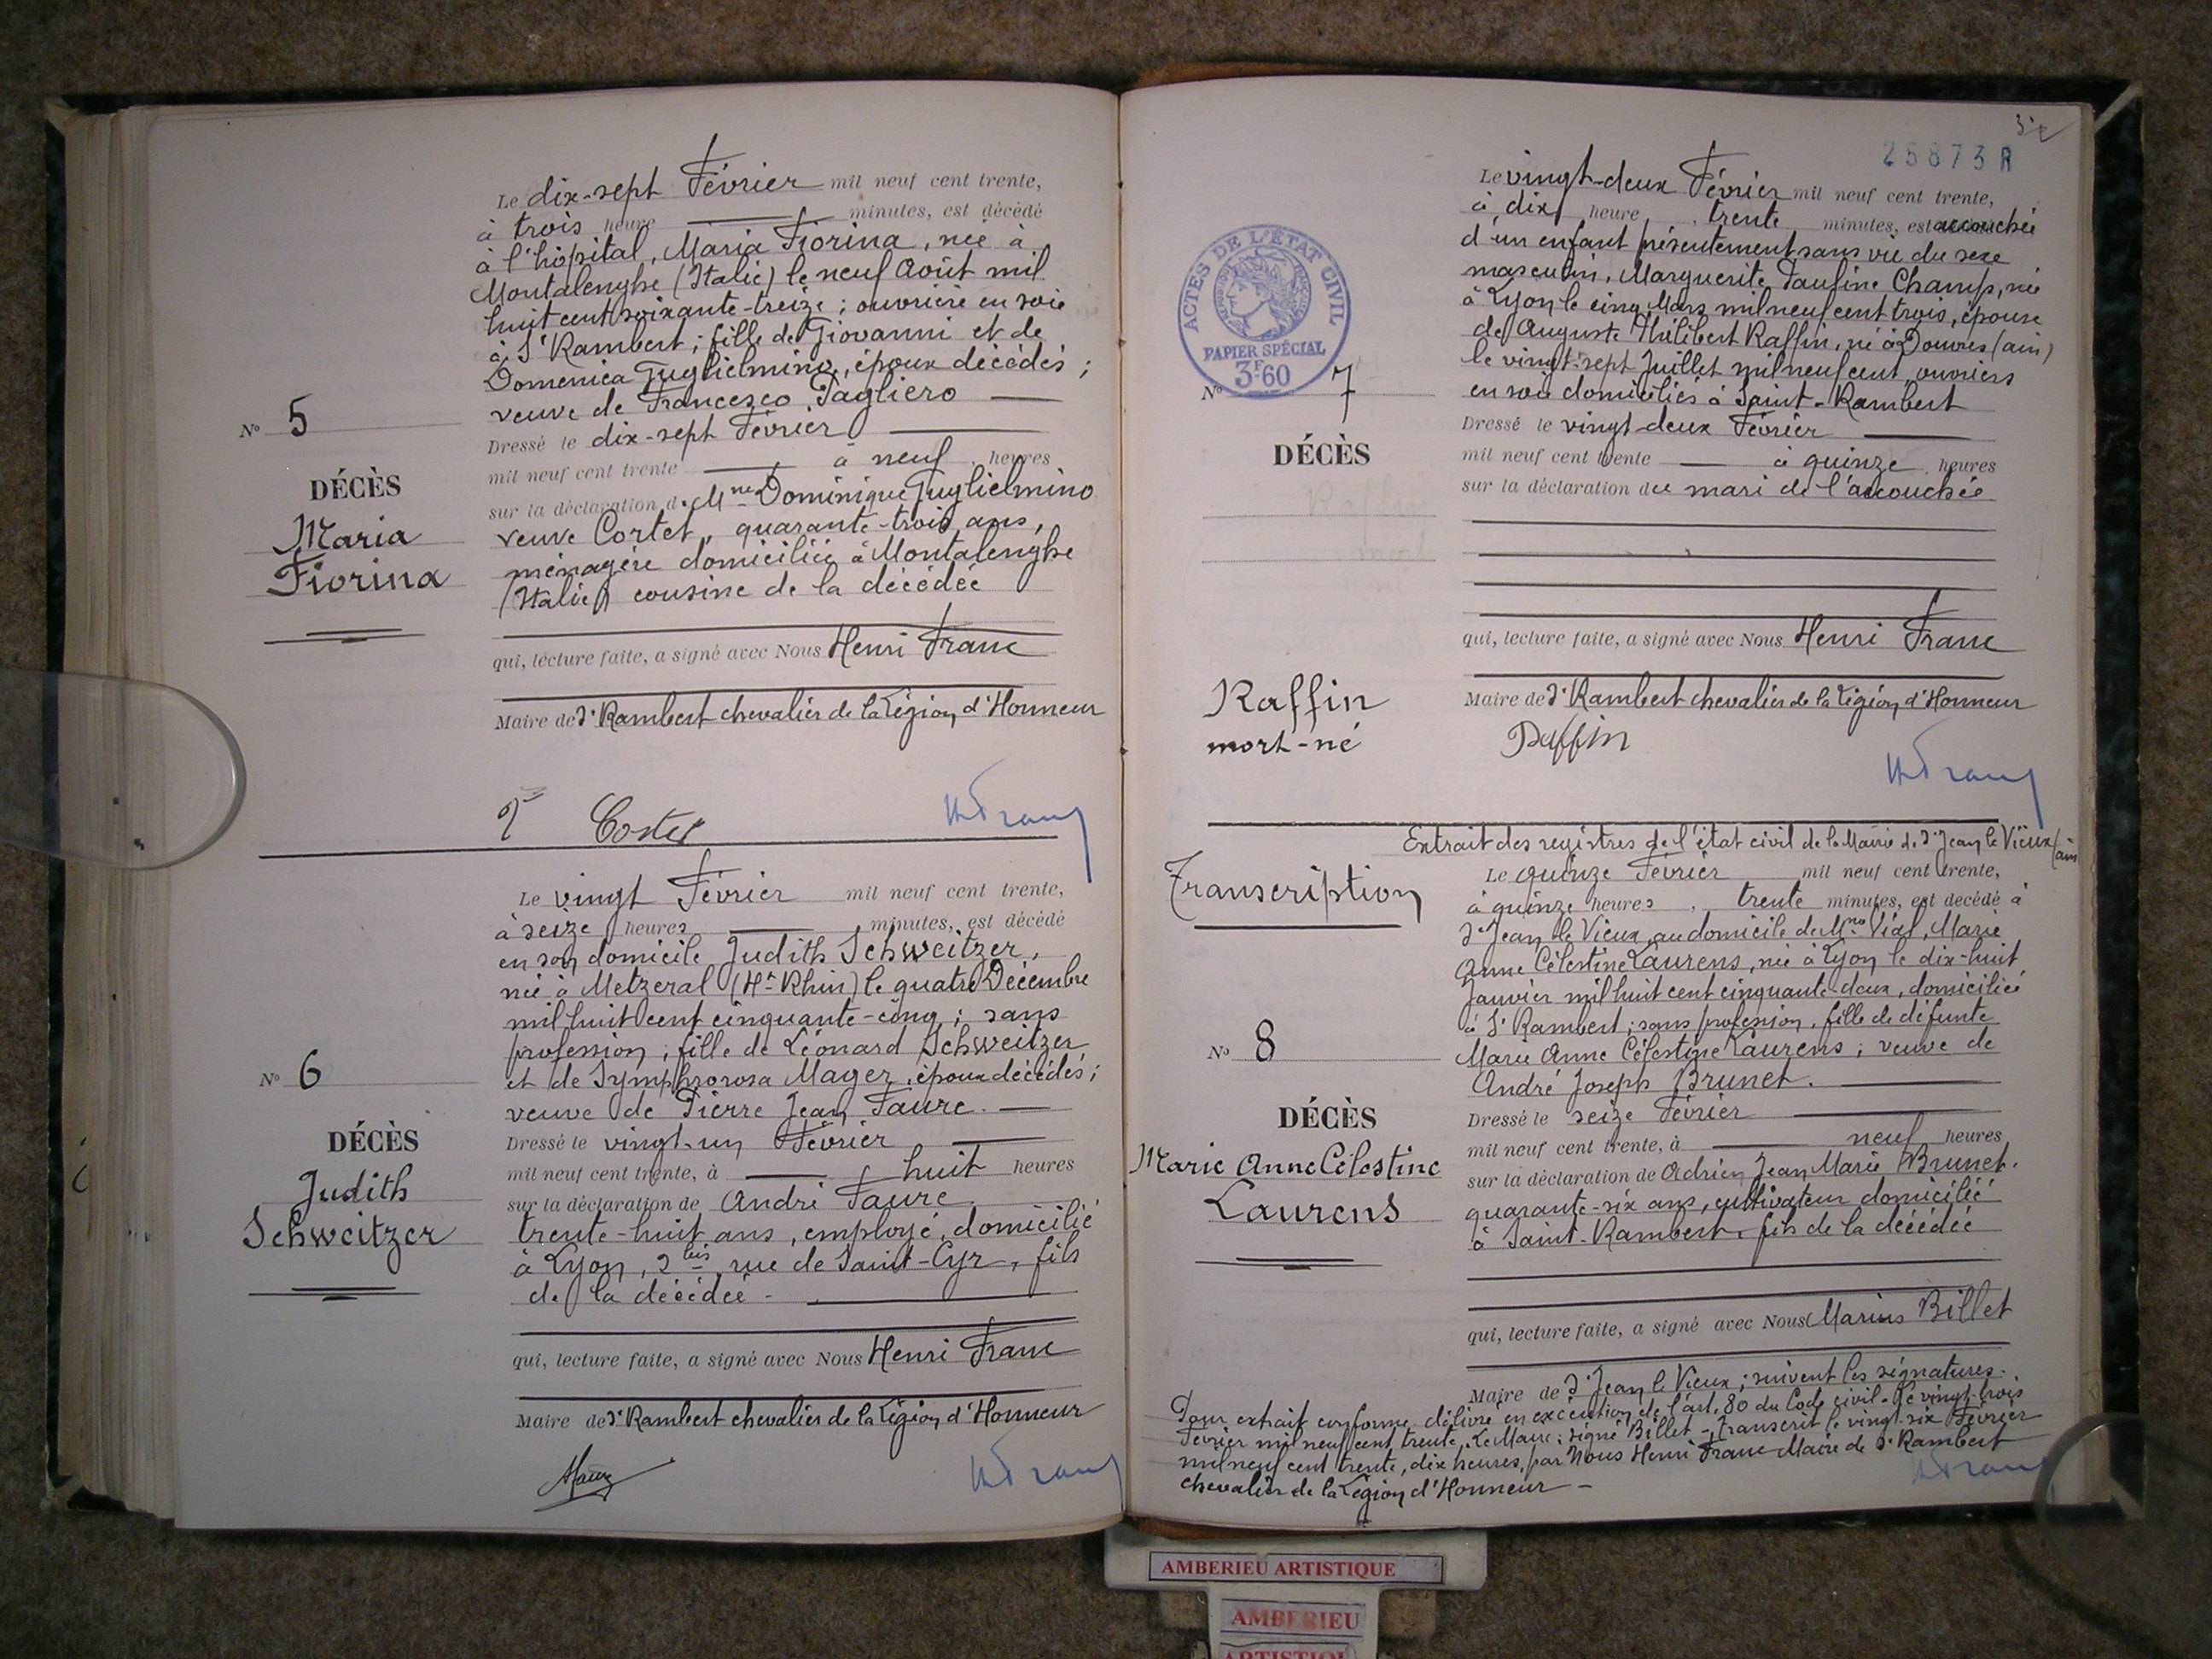 Le dix-sept Février mil neuf cent trente,
à trois heure minutes, est décédé
à l'hôpital, Maria Fiorina, née à
Montalenghe (Italie) le neuf Août mil
huit cent soixante-treize ; ouvrière en soie
à St Rambert ; fille de Giovanni et de
Domenica Guglielmino, époux décédés ;
veuve de Francesco Pagliero
N° 5
Dressé le dix-sept Février
mil neuf cent trente à neuf heures
DÉCÈS
sur la déclaration de Mme Dominique Guglielmino
Maria
veuve Cortet, quarante-trois ans,
ménagère domiciliée à Montalenghe
Fiorina
(Italie) cousine de la décédée
qui, lecture faite, a signé avec Nous Henri Franc
Maire de St Rambert chevalier de la Légion d'Honneur
HFranc
Le vingt Février mil neuf cent trente,
à seize heures minutes, est décédé
en son domicile Judith Schweitzer,
née à Metzeral (Ht Rhin) le quatre Décembre
mil huit cent cinquante-cinq ; sans
profession ; fille de Léonard Schweitzer
N° 6
et de Symphorosa Mager, époux décédés ;
veuve de Pierre Jean Faure.
DÉCÈS
Dressé le vingt-un Février
mil neuf cent trente, à huit heures
Judith
sur la déclaration de André Faure,
Schweitzer
trente-huit ans, employé, domicilié
à Lyon, 2 bis, rue de Saint-Cyr, fils
de la décédée -
qui, lecture faite, a signé avec Nous Henri Franc
Maire de St Rambert chevalier de la Légion d'Honneur
HFranc
25873 R
Le vingt-deux Février mil neuf cent trente,
à dix heure trente minutes, est accouchée
d'un enfant présentement sans vie du sexe
masculin, Marguerite Pauline Champ, née
à Lyon le cinq Mars mil neuf cent trois, épouse
de Auguste Philibert Raffin, né à Douvres (ain)
le vingt-sept Juillet mil neuf cent, ouvriers
en soie domiciliés à Saint-Rambert
ACTES DE L'ÉTAT CIVIL
PAPIER SPÉCIAL
3F60
N° 7
DÉCÈS
Dressé le vingt-deux Février
mil neuf cent trente à quinze heures
sur la déclaration du mari de l'accouchée
qui, lecture faite, a signé avec Nous Henri Franc
Raffin
mort-né
Maire de St Rambert chevalier de la Légion d'Honneur
Raffin
HFranc
Extrait des registres de l'état civil de la Mairie de St Jean le Vieux (ain
Transcription
Le quinze Février mil neuf cent trente,
à quinze heures, trente minutes, est décédé à
St Jean le Vieux, au domicile de Mme Vial, Marie
Anne Célestine Laurens, née à Lyon le dix-huit
Janvier mil huit cent cinquante-deux, domiciliée
à St Rambert ; sans profession, fille de défunte
N° 8
Marie Anne Célestine Laurens ; veuve de
André Joseph Brunet.
DÉCÈS
Dressé le seize Février
mil neuf cent trente, à neuf heures
Marie Anne Célestine
Laurens
sur la déclaration de Adrien Jean Marie Brunet.
quarante-six ans, cultivateur domicilié
à Saint-Rambert, fils de la décédée
qui, lecture faite, a signé avec Nous Marius Billet
Maire de St Jean le Vieux ; suivent les signatures.
Pour extrait conforme délivré en exécution de l'art. 80 du Code civil - le vingt-trois
Février mil neuf cent trente. Le Maire : signé Billet - Transcrit le vingt-six Février
mil neuf cent trente, dix heures, par Nous Henri Franc Maire de St Rambert
chevalier de la Légion d'Honneur -
HFranc
AMBERIEU ARTISTIQUE
AMBERIEU
ARTISTIQU